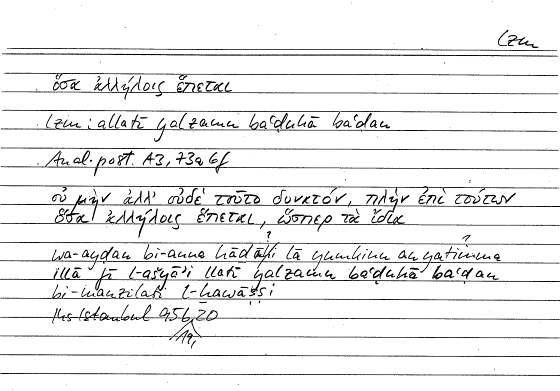 lzm
ὅσα ἀλλήλοις ἕπεται
lzm: allatī yalzamu baʿḍuhā baʿḍan
Anal. post. A3, 73a6f
οὐ μὴν ἀλλ' οὐδὲ τοῦτο δυνατόν, πλὴν ἐπὶ τούτων
ὅσα ἀλλήλοις ἕπεται, ὥσπερ τὰ ἴδια
?
?
wa-ayḍan bi-anna hāḏā lā yumkinu an yatimma
illā fī l-ašyāʾi llatī yalzamu baʿḍuhā baʿḍan
bi-manzilati l-ḫawāṣṣi
Hs Istanbul 956,20
19,